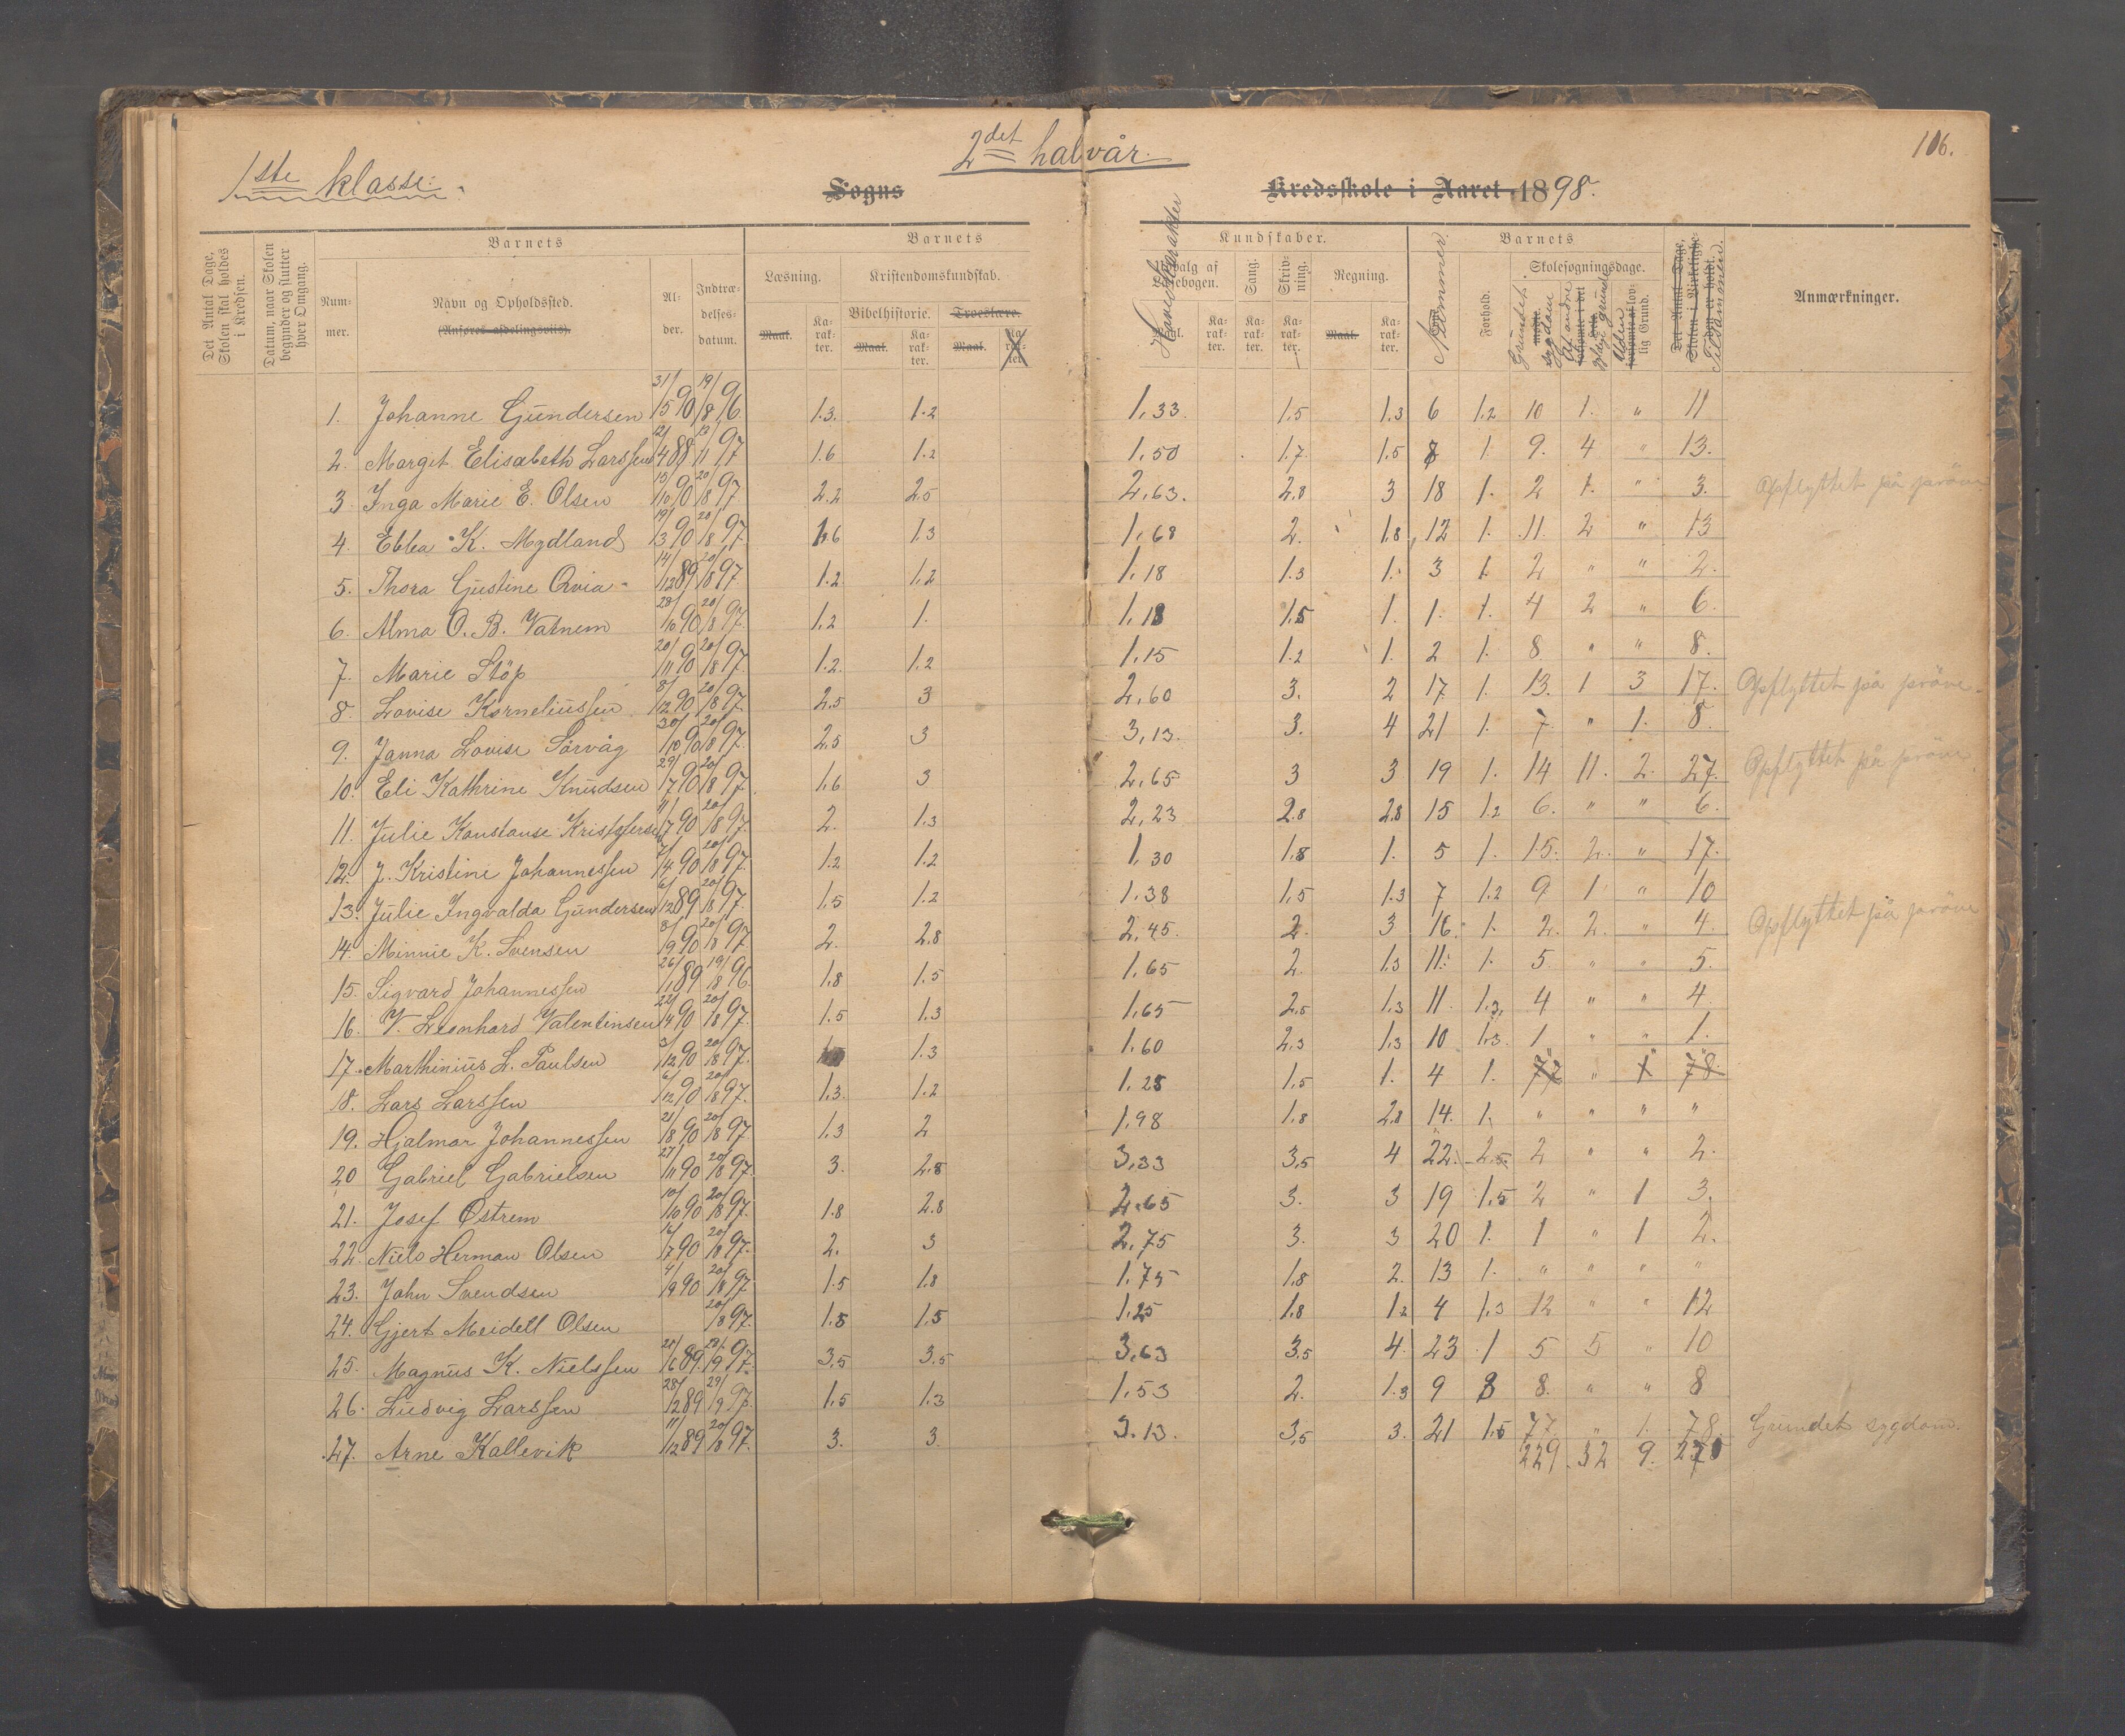 2det halvår.
106.
1ste klasse.
Sogns
Kredsskole i Aaret 1898.
Det Antal Dage, Skolen skal holdes i Kredsen.
Datum, naar Skolen begynder og slutter hver Omgang.
Barnets
Barnets
Kundskaber.
Barnets
Nummer.
Navn og Opholdssted.
(Anføres afdelingsvis).
Alder.
Indtrædelsesdatum.
Læsning.
Kristendomskundskab.
Bibelhistorie.
Troeslære.
Maal.
Karakter.
Maal.
Karakter.
Maal.
Karakter.
Hovedkarakter
Udvalg af Læsebogen.
Sang.
Skrivning.
Regning.
Karakter.
Karakter.
Karakter.
Maal.
Karakter.
Nummer.
Forhold.
Skolesøgningsdage.
Grundet sygdom
Af andre lovlige grunde
Uden lovlig Grund.
Det Antal Dage, Skolen i Virkeligheden er holdt.
Tilsammen.
Anmærkninger.
1. Johanne Gundersen 31/5 90 19/8 96 1.3. 1.2 1,33 1,5 1,3 6 1,2 10 1. " 11
2. Margit Elisabeth Larssen 12/4 88 13/11 97 1.6 1.2 1,50 1,7 1,5 8 1. 9. 4 " 13.
3. Inga Marie E. Olsen 15/10 90 20/8 97 2.2 2.5 2,63. 2,8 3 18 1. 2 1. " 3. Opflyttet på prøve
4. Ebba K. Mydland 19/3 90 20/8 97 1.6 1.3 1,68 2. 1.8 12 1. 11. 2 " 13
5. Thora Gustine Qvia 14/12 89 20/8 97 1.2 1,2 1,18 1.3 1. 3 1. 2 " " 2.
6. Alma O. B. Vatnem 28/10 90 20/8 97 1,2 1. 1,18 1,5 1. 1. 1. 4 2 " 6.
7. Marie Støp 20/11 90 20/8 97 1.2. 1,2 1,15 1.2 1. 2 1. 8 " " 8.
8. Lovise Korneliussen 8/12 90 20/8 97 2.5 3 2,60 3. 2 17 1. 13. 1 3 17. Opflyttet på prøve.
9. Janna Lovise Sørvåg 30/10 90 20/8 97 2.5 3 3,13. 3. 4 21 1. 7. " 1. 8.
10. Eli Kathrine Knudsen 29/7 90 20/8 97 1,6 3 2,65 3 3 19 1. 14 11. 2. 27. Opflyttet på prøve
11. Julie Konstanse Kristofersen 11/7 90 20/8 97 2. 1.3 2,23 2.8 2.8 15 1.2 6. " " 6.
12. J. Kristine Johannessen 7/4 90 20/8 97 1.2 1.2 1,30 1,8 1. 5 1. 15. 2. " 17.
13. Julie Ingvalda Gundersen 6/12 89 20/8 97 1,5 1.2 1.38 1,5 1.3 7 1.2 9 1 " 10
14. Minnie K. Svensen 8/9 90 20/8 97 2. 2.8 2,45. 2. 3 16. 1. 2. 2. " 4. Opflyttet på prøve
15. Sigvard Johannessen 26/1 89 19/8 96 1,8 1.5 1,65 2. 1,3 11. 1. 5 " " 5.
16. V. Leonhard Valentinsen 22/4 90 20/8 97 1.5 1.3 1,65 2,5 1,3 11. 1.3. 4 " " 4.
17. Marthinius L. Paulsen 3/12 90 20/8 97 1.3 1.60 2,3 1,3 10 1.3. 1 " " 1.
18. Lars Larssen 6/12 90 20/8 97 1,3. 1.2 1,25 1,5 1. 4 1. 77 " 1 78.
19. Hjalmar Johannessen 21/8 90 20/8 97 1,3 2 1,98 1.8 2,8 14. 1. " " " "
20 Gabriel Gabrielsen 27/11 90 20/8 97 3. 2.8 3,33 3,5 4 22. 2.5 2 " " 2.
21. Josef Østrem 10/10 90 20/8 97 1.8 2.8 2,65 3. 3 19 1,5 2 " 1 3.
22. Niels Herman Olsen 16/7 90 20/8 97 2. 3 2,75 3. 3 20 1. 1 " 1 2.
23. John Svendsen 4/9 90 20/8 97 1.5 1.8 1,75 1,8 2. 13 1. " " " "
24. Gjert Meidell Olsen 20/8 97 1.8 1,5 1,25 1.8 1.2 4 1,3 12 " " 12
25. Magnus K. Nielssen 20/6 89 20/9 97 3,5 3.5 3,63 3.5 4. 23 1 5 5 " 10
26. Ludvig Larssen 28/12 89 29/9 97 1,5 1.3 1,53 2. 1.3 9 8 8. " " 8
27. Arne Kallevik 11/12 89 20/8 97 3. 3. 3.13. 3,5 3. 21 1.5 77. " 1. 78. Grundet sygdom.
229 32 9. 270